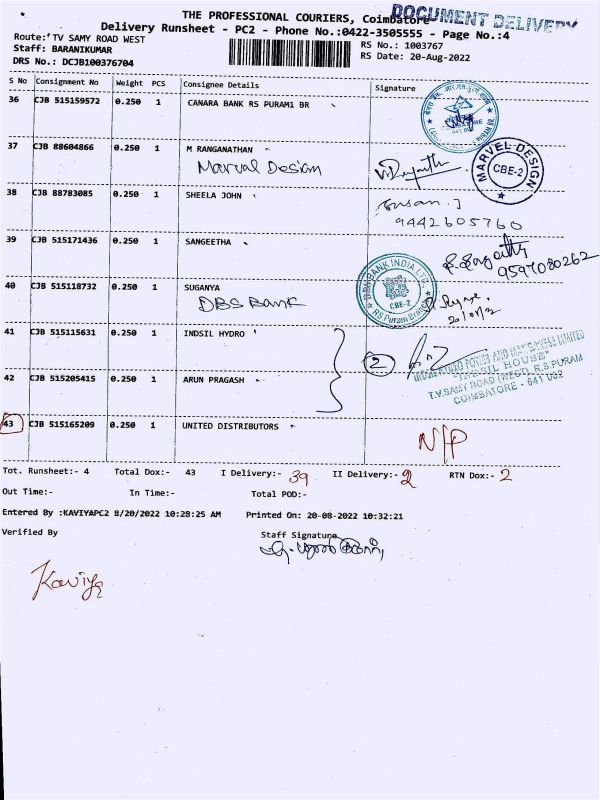 THE PROFESSIONAL COURIERS, Coimbatore
DOCUMENT DELIVERY
Delivery Runsheet - PC2 - Phone No.:0422-3505555 - Page No.:4
Route: TV SAMY ROAD WEST
RS No.: 1003767
Staff: BARANIKUMAR
RS Date: 20-Aug-2022
DRS No.: DCJB100376704
S No Consignment No Weight PCS Consignee Details Signature
36 CJB 515159572 0.250 1 CANARA BANK RS PURAM1 BR
37 CJB 88604866 0.250 1 M RANGANATHAN
Marval Design
MARVEL-DESIGN
CBE-2
38 CJB 88783085 0.250 1 SHEELA JOHN
Susan. J
9442605760
39 CJB 515171436 0.250 1 SANGEETHA
9597080262
40 CJB 515118732 0.250 1 SUGANYA
DBS Bank
DBS BANK INDIA LTD.
CBE-2
RS Puram Branch
41 CJB 515115631 0.250 1 INDSIL HYDRO
2
"INDSIL HOUSE"
T.V.SAMY ROAD (WEST), R.S.PURAM
COIMBATORE - 641 002
42 CJB 515205415 0.250 1 ARUN PRAGASH
43 CJB 515165209 0.250 1 UNITED DISTRIBUTORS
N/P
Tot. Runsheet:- 4 Total Dox:- 43 I Delivery:- 39 II Delivery:- 2 RTN Dox:- 2
Out Time:- In Time:- Total POD:-
Entered By :KAVIYAPC2 8/20/2022 10:28:25 AM Printed On: 20-08-2022 10:32:21
Verified By
Staff Signature
Kaviya